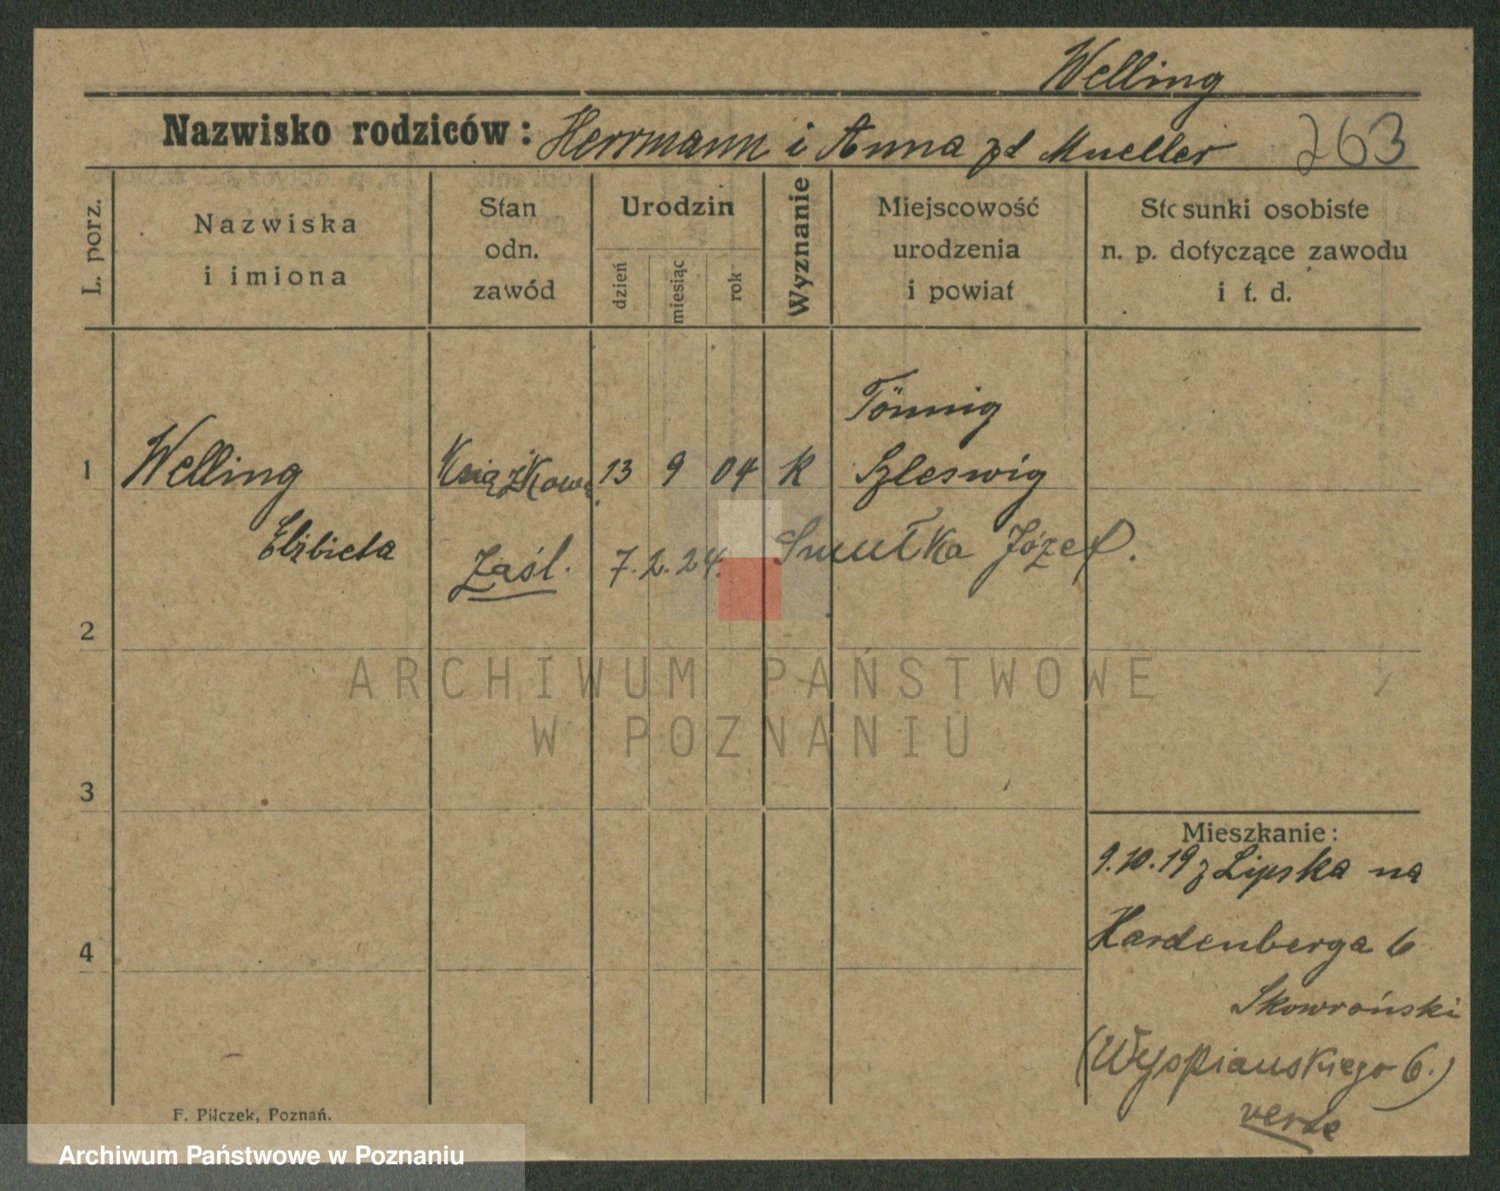 Welling
Nazwisko rodziców: Herrmann i Anna zd Mueller 263
L. porz.
Nazwiska
i imiona
Stan
odn.
zawód
Urodzin
dzień
miesiąc
rok
Wyznanie
Miejscowość
urodzenia
i powiat
Stosunki osobiste
n. p. dotyczące zawodu
i t. d.
Tönnig
1 Welling Książkowa 13 9 04 K Szleswig
Elżbieta Zaśl. 7.2.24. Smułka Józef.
2
ARCHIWUM PAŃSTWOWE
W POZNANIU
3
Mieszkanie:
9.10.19 z Lipska na
4 Hardenberga 6
Skowroński
(Wyspiańskiego 6.)
verte
F. Pilczek, Poznań.
Archiwum Państwowe w Poznaniu